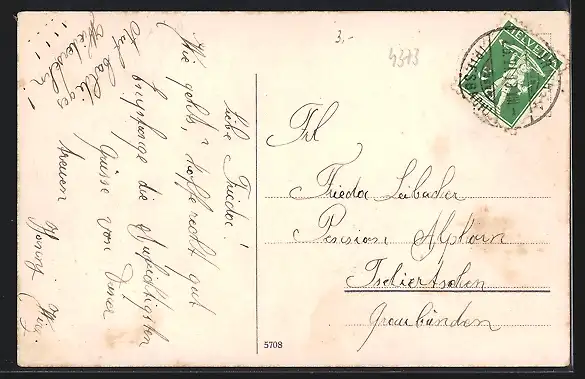 Liebe Frieda!
Wie gehts, hoffe recht gut
Empfange die aufrichtigsten
Grüsse von Deiner
treuen
Auf baldiges
Wiedersehen!
3,-
4373
HELVETIA
Frl
Frieda Leibacher
Pension Alphorn
Tschiertschen
Graubünden
5708